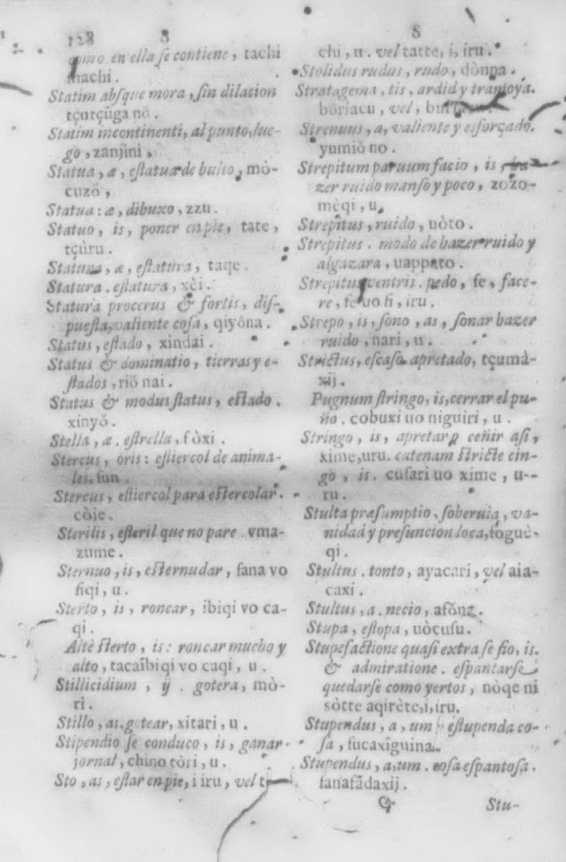 128 S
como en ella se contiene, tachi
machi.
Statim absque mora, sin dilacion
tçutçũga nŏ.
Statim incontinenti, al punto, lue-
go, zanjini,
Statua, æ, estatua de bulto, mò-
cuzŏ,
Statua: æ, dibuxo, zzu.
Statuo, is, poner en pie, tate,
tçúru.
Statura, æ, estatura, taqe.
Statura. estatura, xèi.
Statura procerus & fortis, dis-
puesta, valiente cosa, qiyŏna.
Status, estado, xindai.
Status & dominatio, tierras y e-
stados, riŏ nai.
Status & modus status, estado.
xinyŏ.
Stella, æ. estrella, fòxi.
Stercus, oris: estiercol de anima-
les. fun
Stercus, estiercol para estercolar.
còie.
Sterilis, esteril que no pare. vma-
zume.
Sternuo, is, esternudar, fana vo
fiqi, u.
Sterto, is, roncar, ibiqi vo ca-
qi.
Altè sterto, is: roncar mucho y
alto, tacaĩbiqi vo caqi, u.
Stillicidium, ij. gotera, mò-
ri.
Stillo, as. gotear, xitari, u.
Stipendio se conduco, is, ganar
jornal, chino tòri, u.
Sto, as, estar en pie, i iru, vel
S
chi, u. vel tatte, i, iru.
Stolidus rudus, rudo, dònna.
Stratagema, tis, ardid y tramoya.
bòriacu, vel,
Strenuus, a, valiente y esforçado.
yumiò no.
Strepitum paruum facio, is
zer ruido manso y poco, zozo-
mèqi, u,
Strepitus, ruido, uòto.
Strepitus. modo de hazer ruido y
algazara, uappato.
Strepitus ventris. pedo, fe, face-
re, fe uo fi, iru.
Strepo, is, sono, as, sonar hazer
ruido, nari, u.
Strictus, escaso. apretado, tçumà-
xij.
Pugnum stringo, is, cerrar el pu-
ño. cobuxi uo niguiri, u.
Stringo, is, apretar o ceñir asi,
xime, uru. catenam stricte cin-
go, is. cusari uo xime, u--
ru.
Stulta præsumptio. soberuia, va-
nidad y presuncion loca, foguè-
qi.
Stultus. tonto, ayacari, vel aia-
caxi.
Stultus, a. necio, afŏna.
Stupa, estopa, uòcusu.
Stupefactione quasi extra se fio, is.
& admiratione. espantarse
quedarse como yertos, nòqe ni
sòtte aqirète, i, iru.
Stupendus, a, um. estupenda co-
sa, fucaxiguina.
Stupendus, a, um. cosa espantosa.
fanafadaxij.
& Stu-